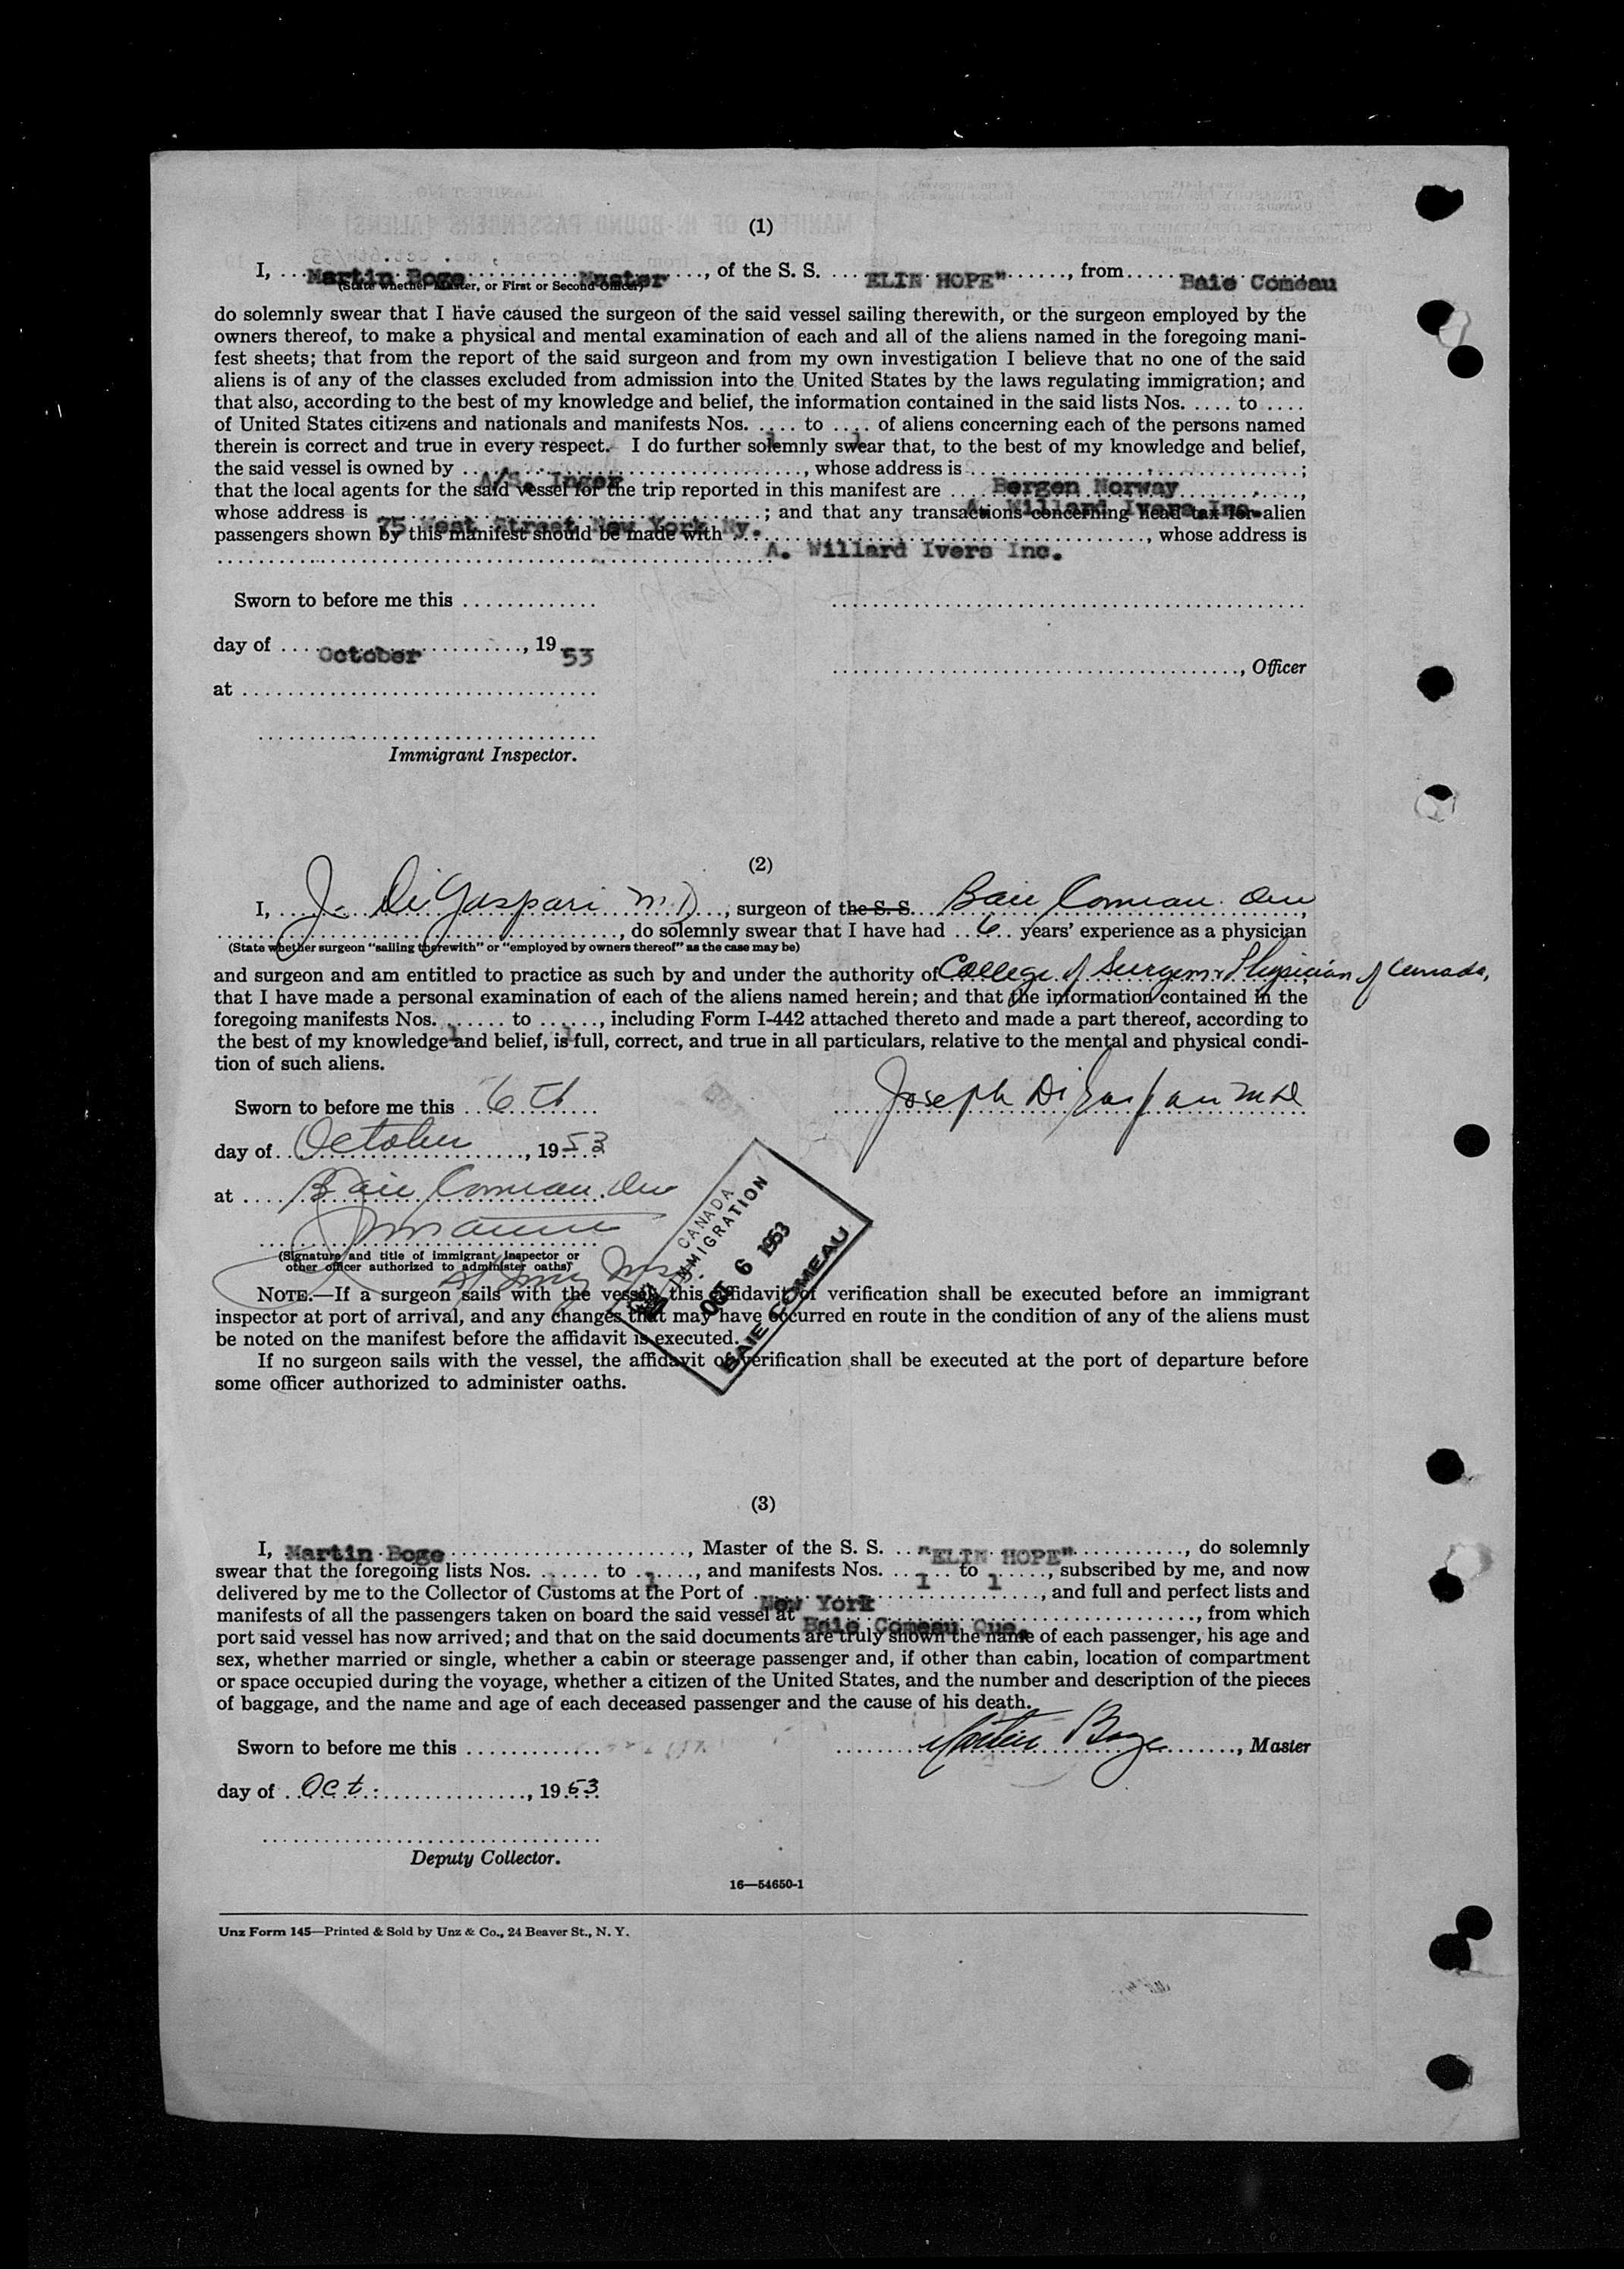 (1)
I, Martin Boge Master, of the S. S. ELIN HOPE", from Baie Comeau
(State whether Master, or First or Second Officer)
do solemnly swear that I have caused the surgeon of the said vessel sailing therewith, or the surgeon employed by the
owners thereof, to make a physical and mental examination of each and all of the aliens named in the foregoing mani-
fest sheets; that from the report of the said surgeon and from my own investigation I believe that no one of the said
aliens is of any of the classes excluded from admission into the United States by the laws regulating immigration; and
that also, according to the best of my knowledge and belief, the information contained in the said lists Nos. .... to ....
of United States citizens and nationals and manifests Nos. .... to .... of aliens concerning each of the persons named
therein is correct and true in every respect. I do further solemnly swear that, to the best of my knowledge and belief,
the said vessel is owned by A/S. Inger, whose address is Bergen Norway;
that the local agents for the said vessel for the trip reported in this manifest are A. Willard Ivers Inc.,
whose address is 75 West Street New York Ny.; and that any transactions concerning head tax for alien
passengers shown by this manifest should be made with A. Willard Ivers Inc., whose address is
Sworn to before me this
day of October, 19 53
, Officer
at
Immigrant Inspector.
(2)
I, J. Di Gaspari M.D., surgeon of the S. S. Baie Comeau Que,
, do solemnly swear that I have had 6 years' experience as a physician
(State whether surgeon "sailing therewith" or "employed by owners thereof" as the case may be)
and surgeon and am entitled to practice as such by and under the authority of College of Surgeons & Physician of Canada,
that I have made a personal examination of each of the aliens named herein; and that the information contained in the
foregoing manifests Nos. 1 to 1, including Form I-442 attached thereto and made a part thereof, according to
the best of my knowledge and belief, is full, correct, and true in all particulars, relative to the mental and physical condi-
tion of such aliens.
Sworn to before me this 6th
Joseph Di Gaspari MD
day of October, 19 53
at Baie Comeau Que
(Signature and title of immigrant inspector or
other officer authorized to administer oaths)
CANADA
IMMIGRATION
OCT 6 1953
BAIE COMEAU
NOTE.—If a surgeon sails with the vessel, this affidavit of verification shall be executed before an immigrant
inspector at port of arrival, and any changes that may have occurred en route in the condition of any of the aliens must
be noted on the manifest before the affidavit is executed.
If no surgeon sails with the vessel, the affidavit of verification shall be executed at the port of departure before
some officer authorized to administer oaths.
(3)
I, Martin Boge, Master of the S. S. "ELIN HOPE", do solemnly
swear that the foregoing lists Nos. ...... to 1, and manifests Nos. 1 to 1, subscribed by me, and now
delivered by me to the Collector of Customs at the Port of New York, and full and perfect lists and
manifests of all the passengers taken on board the said vessel at Baie Comeau Que., from which
port said vessel has now arrived; and that on the said documents are truly shown the name of each passenger, his age and
sex, whether married or single, whether a cabin or steerage passenger and, if other than cabin, location of compartment
or space occupied during the voyage, whether a citizen of the United States, and the number and description of the pieces
of baggage, and the name and age of each deceased passenger and the cause of his death.
Sworn to before me this
Martin Boge, Master
day of Oct., 19 53
Deputy Collector.
16—54650-1
Unz Form 145—Printed & Sold by Unz & Co., 24 Beaver St., N. Y.